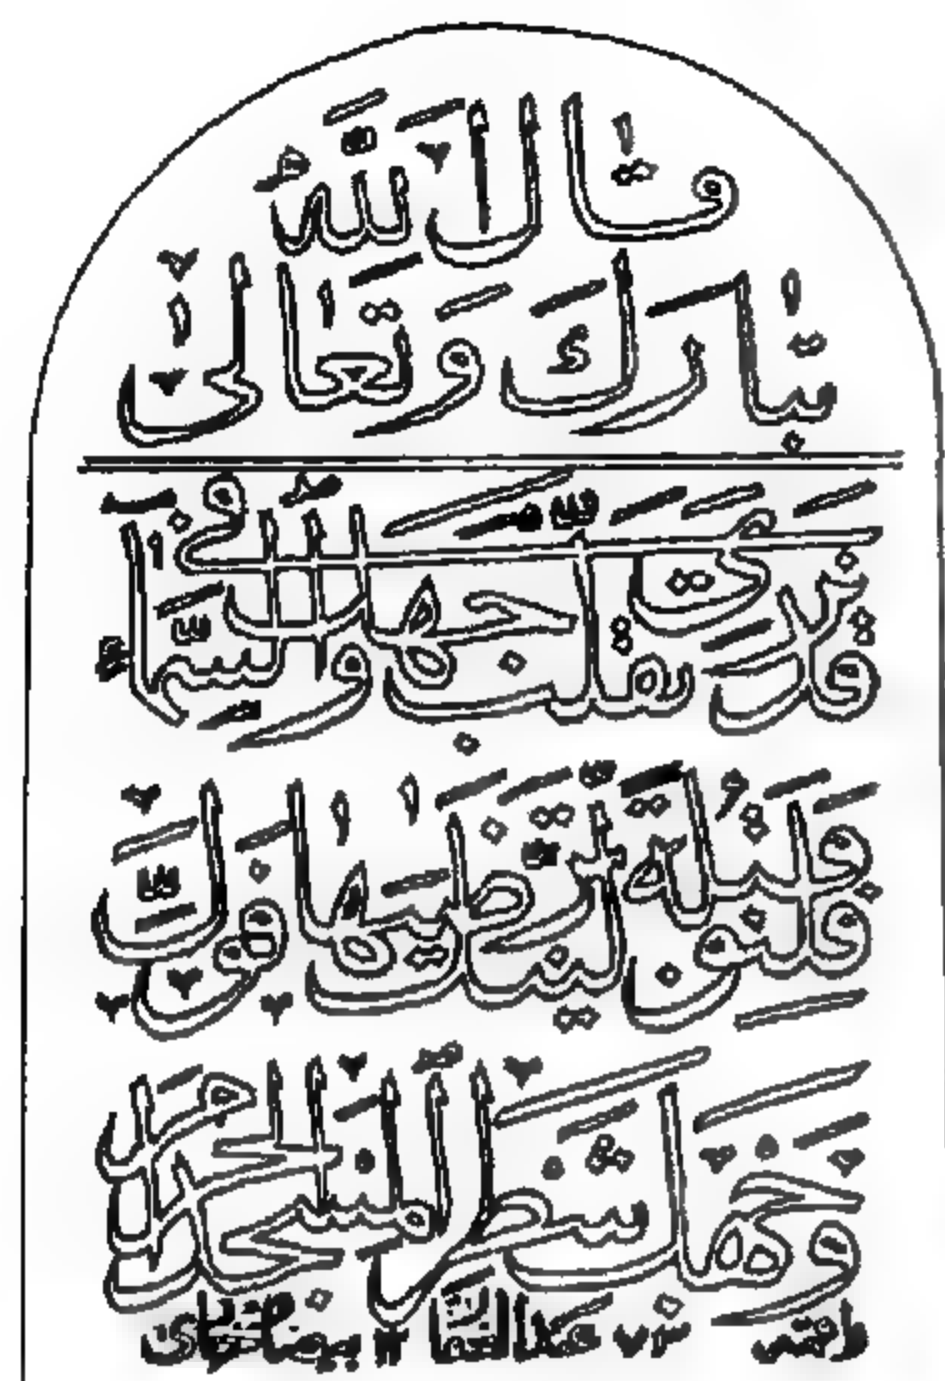 قَالَ اللّٰهُ
تَبَارَكَ وَتَعَالٰى
قَدْ نَرٰى تَقَلُّبَ وَجْهِكَ فِي السَّمَاءِ
فَلَنُوَلِّيَنَّكَ قِبْلَةً تَرْضٰىهَا فَوَلِّ
وَجْهَكَ شَطْرَ الْمَسْجِدِ الْحَرَامِ